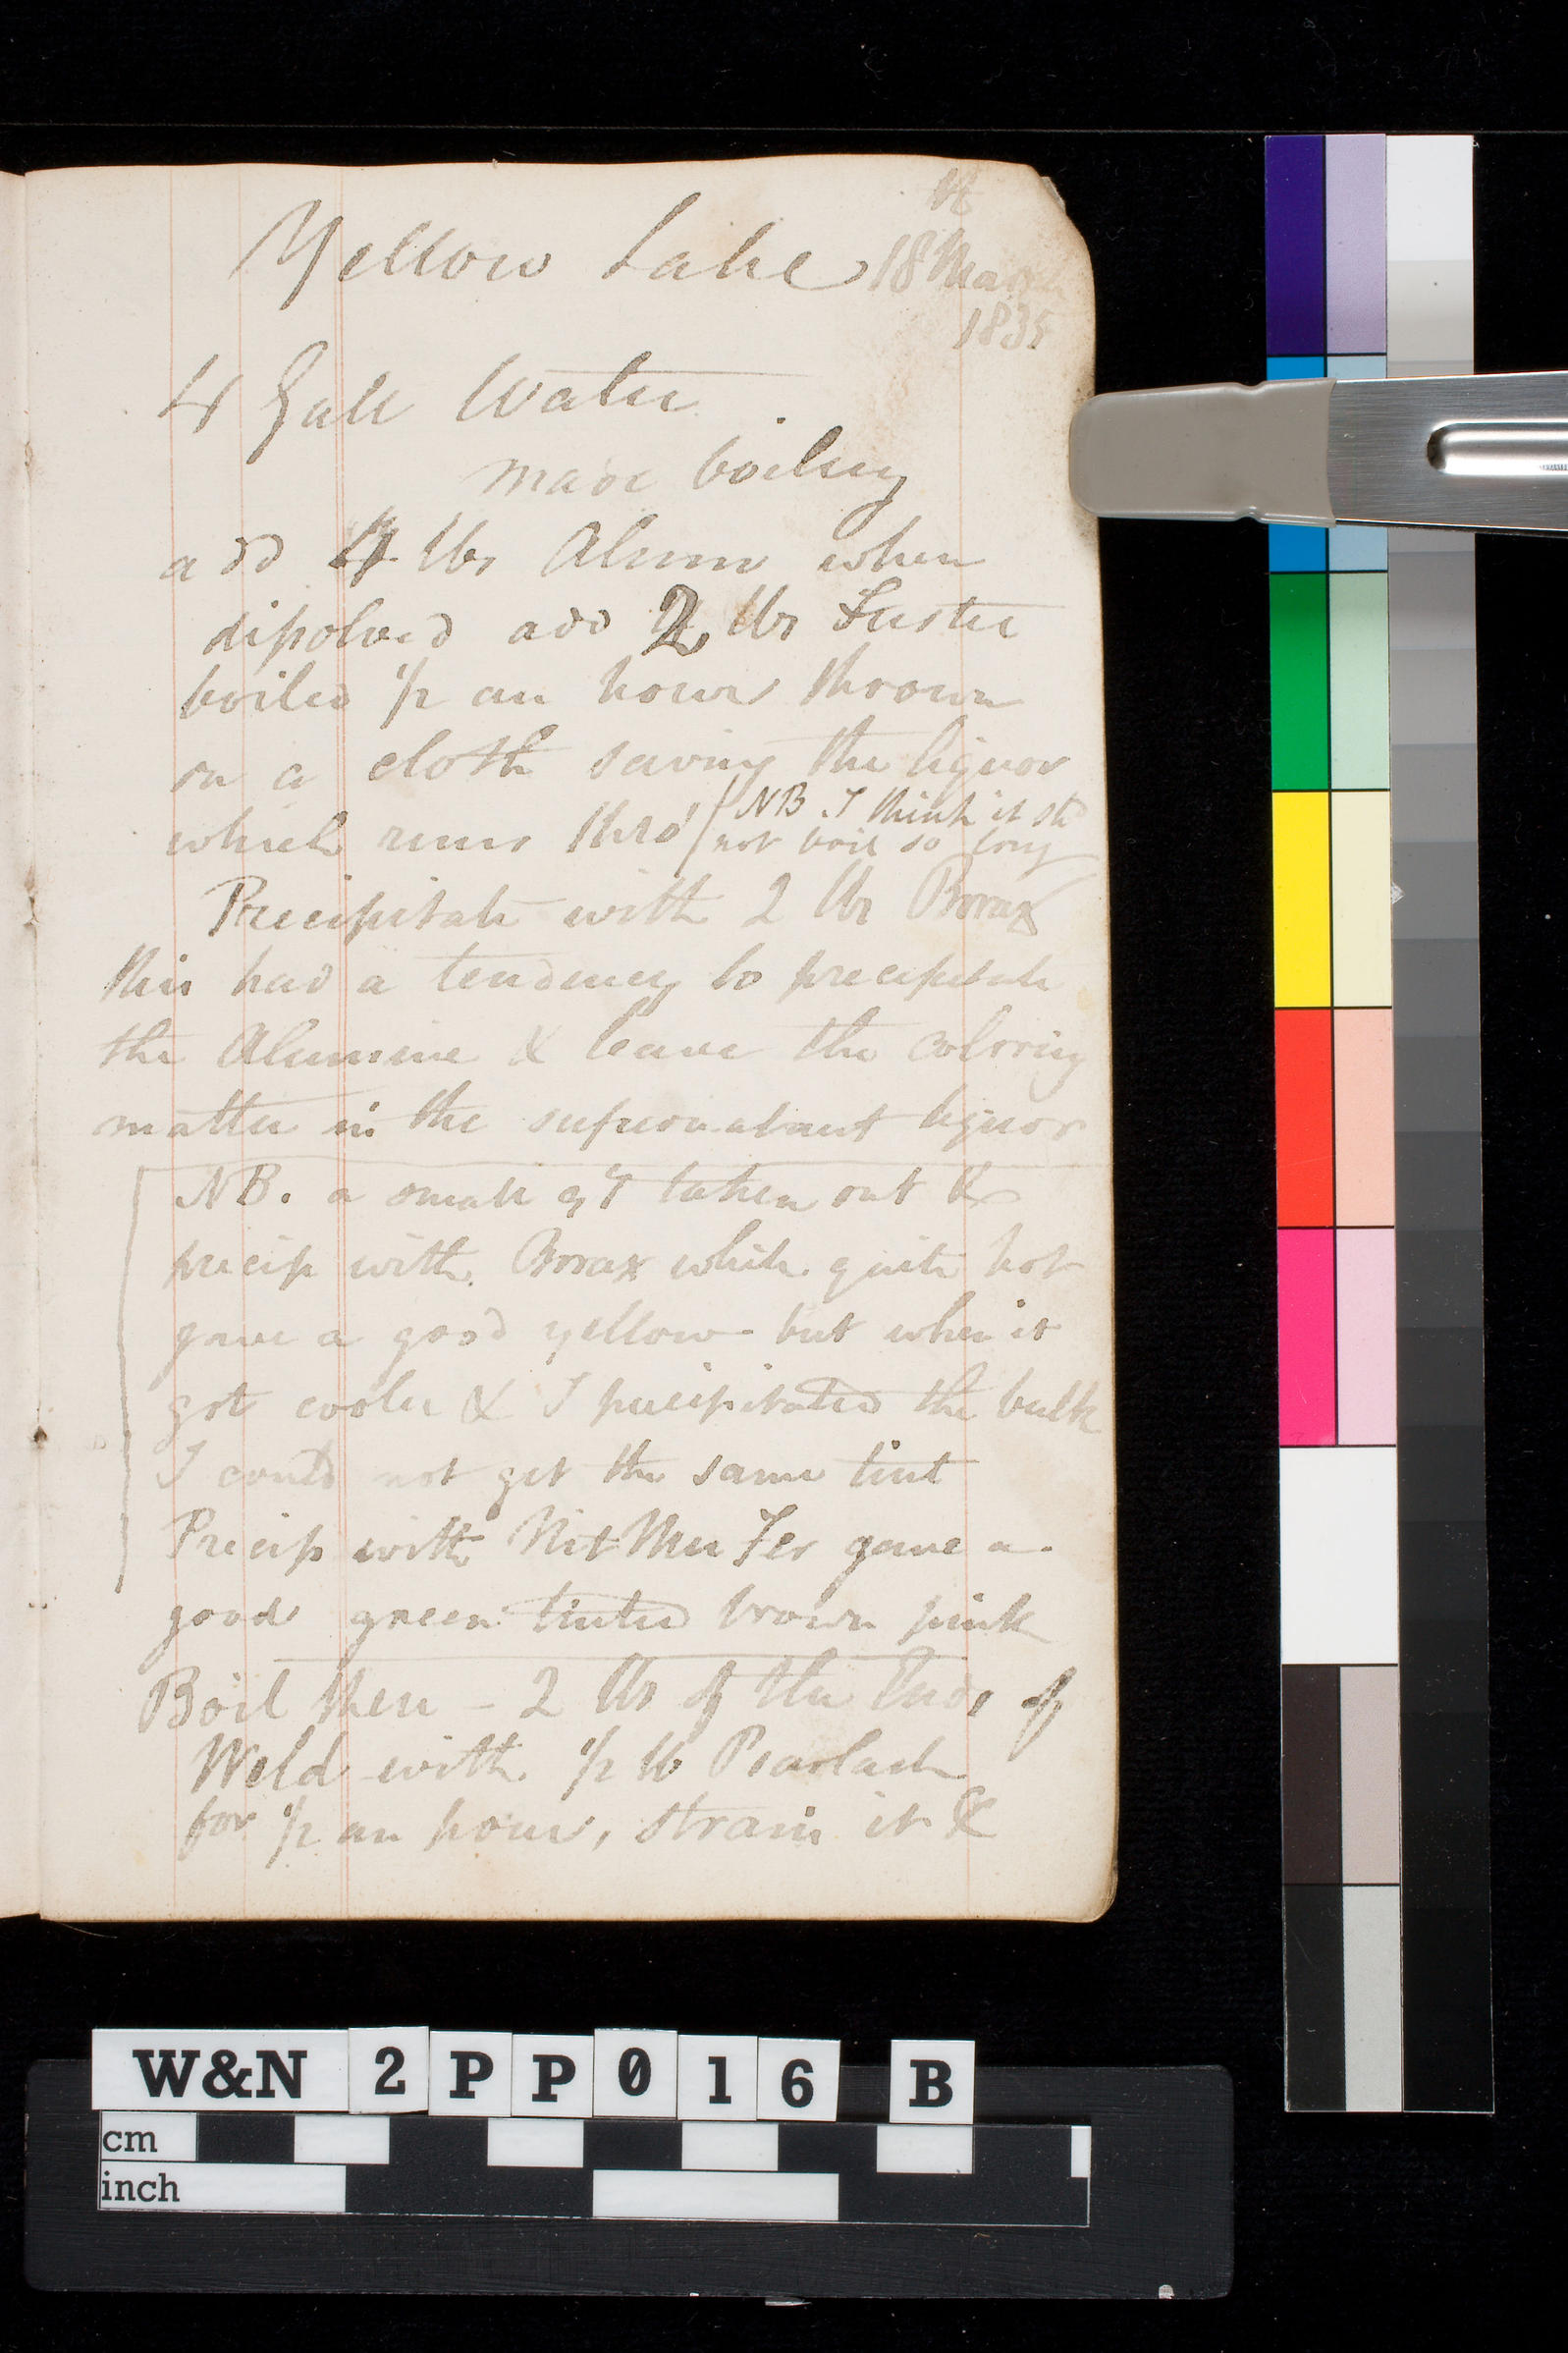 Yellow Lake 18 March
1835
4 Gall Water
made boiling
add 4 lbs Alum when
dissolved add 2 lbs Fustic
boiled 1/2 an hour thrown
on a cloth saving the liquor
which runs thro' (NB. I think it shd
not boil so long
Precipitate with 2 lbs Borax
this had a tendency to precipitate
the Alumine & leave the coloring
matter in the supernatant liquor
NB. a small qy taken out &
precip with Borax while quite hot
gave a good yellow - but when it
got cooler & I precipitated the bulk
I could not get the same tint
Precip with Nit Mur Fer gave a
good green tinted brown pink
Boil then - 2 lbs of the Ends of
Weld with 1/2 lb Pearlash
for 1/2 an hour, strain it &
W&N 2PP016 B
cm
inch